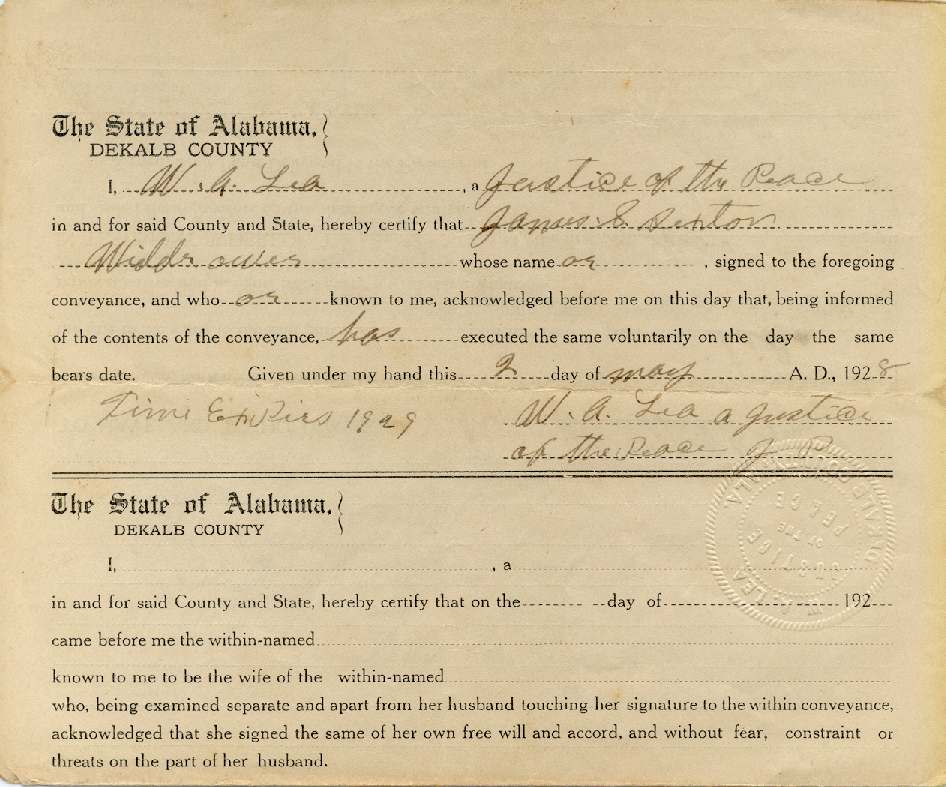 The State of Alabama,
DEKALB COUNTY
I, W. A. Lea , a Justice of the Peace
in and for said County and State, hereby certify that James S. Sexton
Widdrower whose name or , signed to the foregoing
conveyance, and who or known to me, acknowledged before me on this day that, being informed
of the contents of the conveyance, has executed the same voluntarily on the day the same
bears date. Given under my hand this 2 day of may A. D., 1928
Time Exkiers 1929 W. A. Lea a Justice
of the Peace J. P.
The State of Alabama,
DEKALB COUNTY
I, , a
in and for said County and State, hereby certify that on the day of 192
came before me the within-named
known to me to be the wife of the within-named
who, being examined separate and apart from her husband touching her signature to the within conveyance,
acknowledged that she signed the same of her own free will and accord, and without fear, constraint or
threats on the part of her husband.
LEA
JUSTICE
OF THE
PEACE
DEKALB CO. ALA